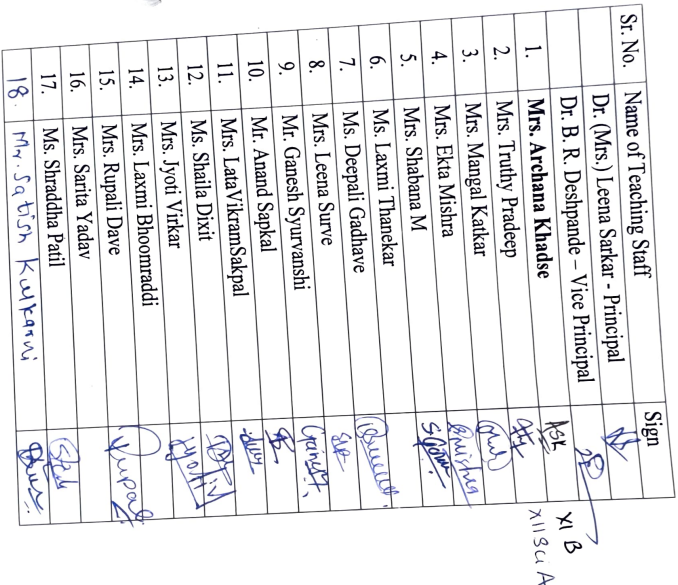 Sr. No. Name of Teaching Staff Sign
Dr. (Mrs.) Leena Sarkar - Principal
Dr. B. R. Deshpande – Vice Principal
1. Mrs. Archana Khadse ASK XI B
2. Mrs. Truthy Pradeep XII Sci A
3. Mrs. Mangal Katkar
4. Mrs. Ekta Mishra
5. Mrs. Shabana M
6. Ms. Laxmi Thanekar
7. Ms. Deepali Gadhave
8. Mrs. Leena Surve
9. Mr. Ganesh Syurvanshi
10. Mr. Anand Sapkal
11. Mrs. LataVikramSakpal
12. Ms. Shaila Dixit
13. Mrs. Jyoti Virkar
14. Mrs. Laxmi Bhoomraddi
15. Mrs. Rupali Dave
16. Mrs. Sarita Yadav
17. Ms. Shraddha Patil
18. Mr. Satish Kulkarni